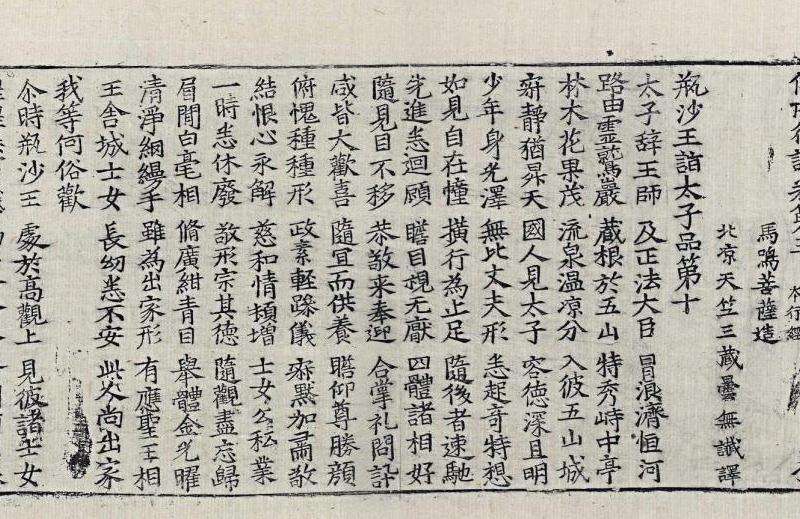 行讃卷第三 本行經
馬鳴菩薩造
北凉天竺三蔵曇無讖譯
瓶沙王詣太子品第十
太子辞王師 及正法大臣 冒浪濟恒河
路由靈鷲巖 蔵根於五山 特秀峙中亭
林木花果茂 流泉温凉分 入彼五山城
寂静猶昇天 國人見太子 容徳深且明
少年身光澤 無比丈夫形 悉起奇特想
如見自在幢 撗行為止足 隨後者速馳
先進悉迴顧 瞻目視无厭 四體諸相好
隨見目不移 恭敬来奉迎 合掌礼問訊
咸皆大歡喜 隨宜而供養 瞻仰尊勝顔
俯愧種種形 政素輕躁儀 寂黙加肅敬
結恨心永解 慈和情頓增 士女公私業
一時悉休廢 敬形宗其徳 隨觀盡忘歸
眉間白毫相 脩廣紺青目 舉體金光曜
清淨網縵手 雖為出家形 有應聖王相
王舍城士女 長幼悉不安 此父尚出家
我等何俗歡
尒時瓶沙王 處於高觀上 見彼諸士女